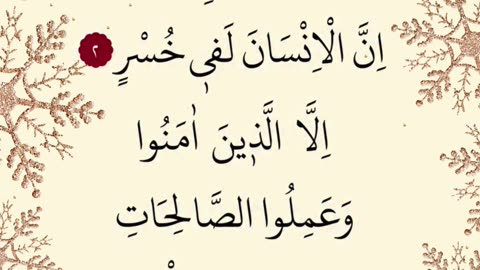 اِنَّ الْاِنْسَانَ لَفٖي خُسْرٍ ٢
اِلَّا الَّذٖينَ اٰمَنُوا
وَعَمِلُوا الصَّالِحَاتِ